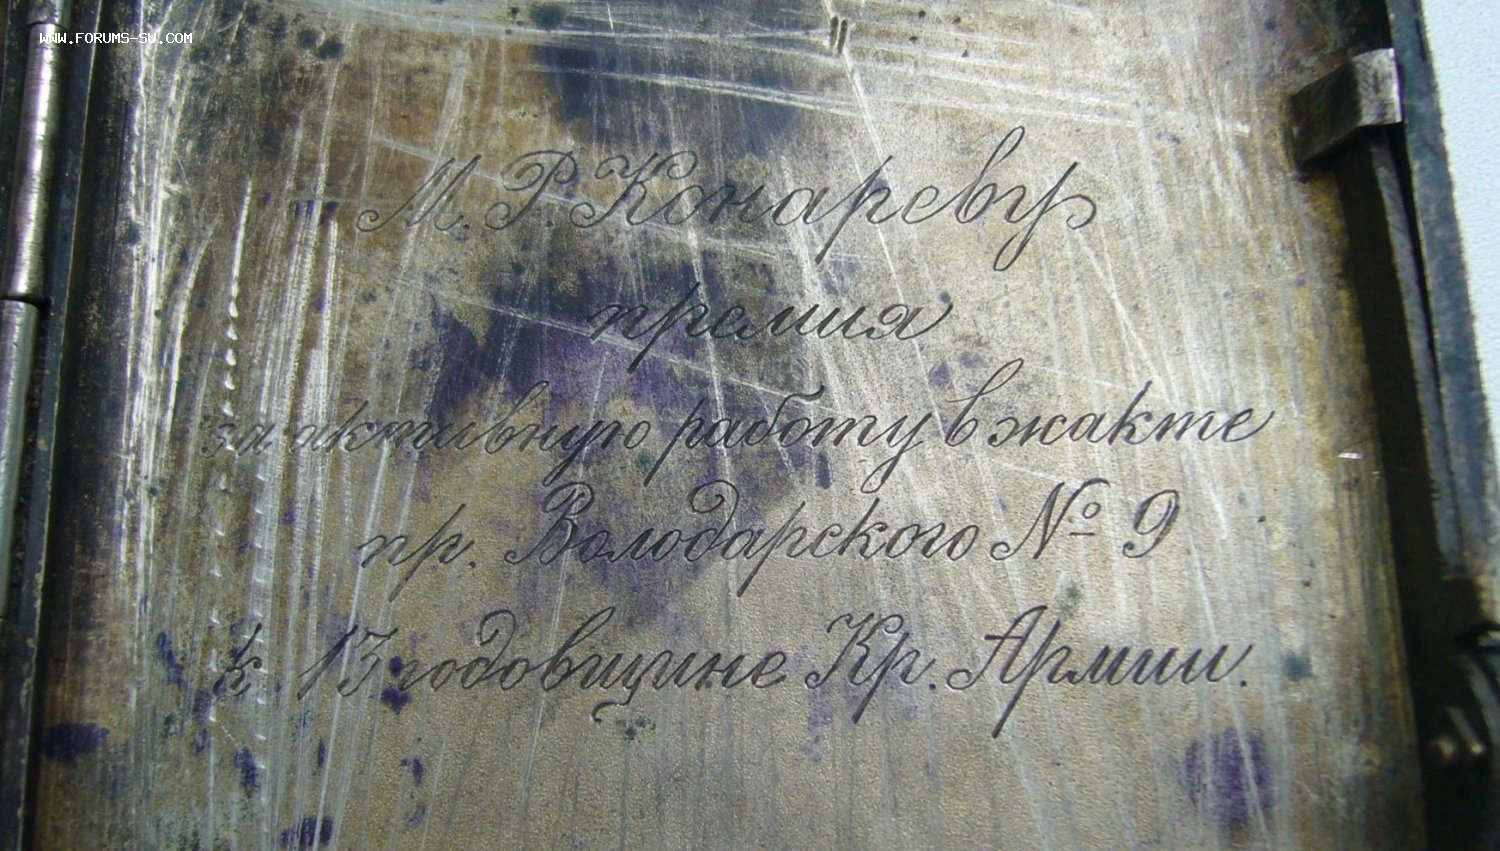 WWW.FORUMS-SU.COM
М. Р. Конареву
премия
за активную работу в жакте
пр. Володарского № 9
к 13 годовщине Кр. Армии.